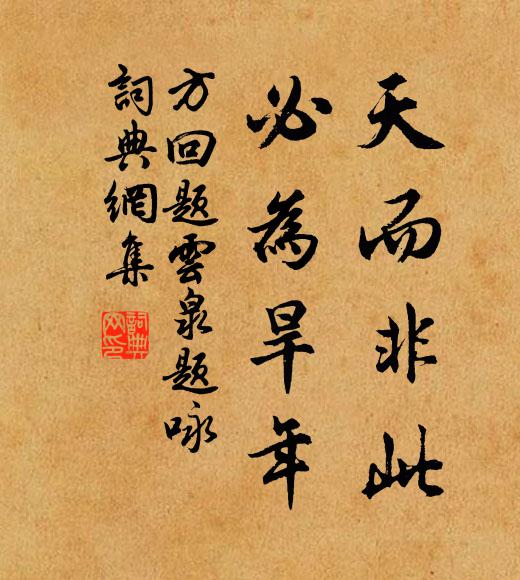 天而非此
必為旱年
方回題雲泉題咏
詞典網集
詞典
网印